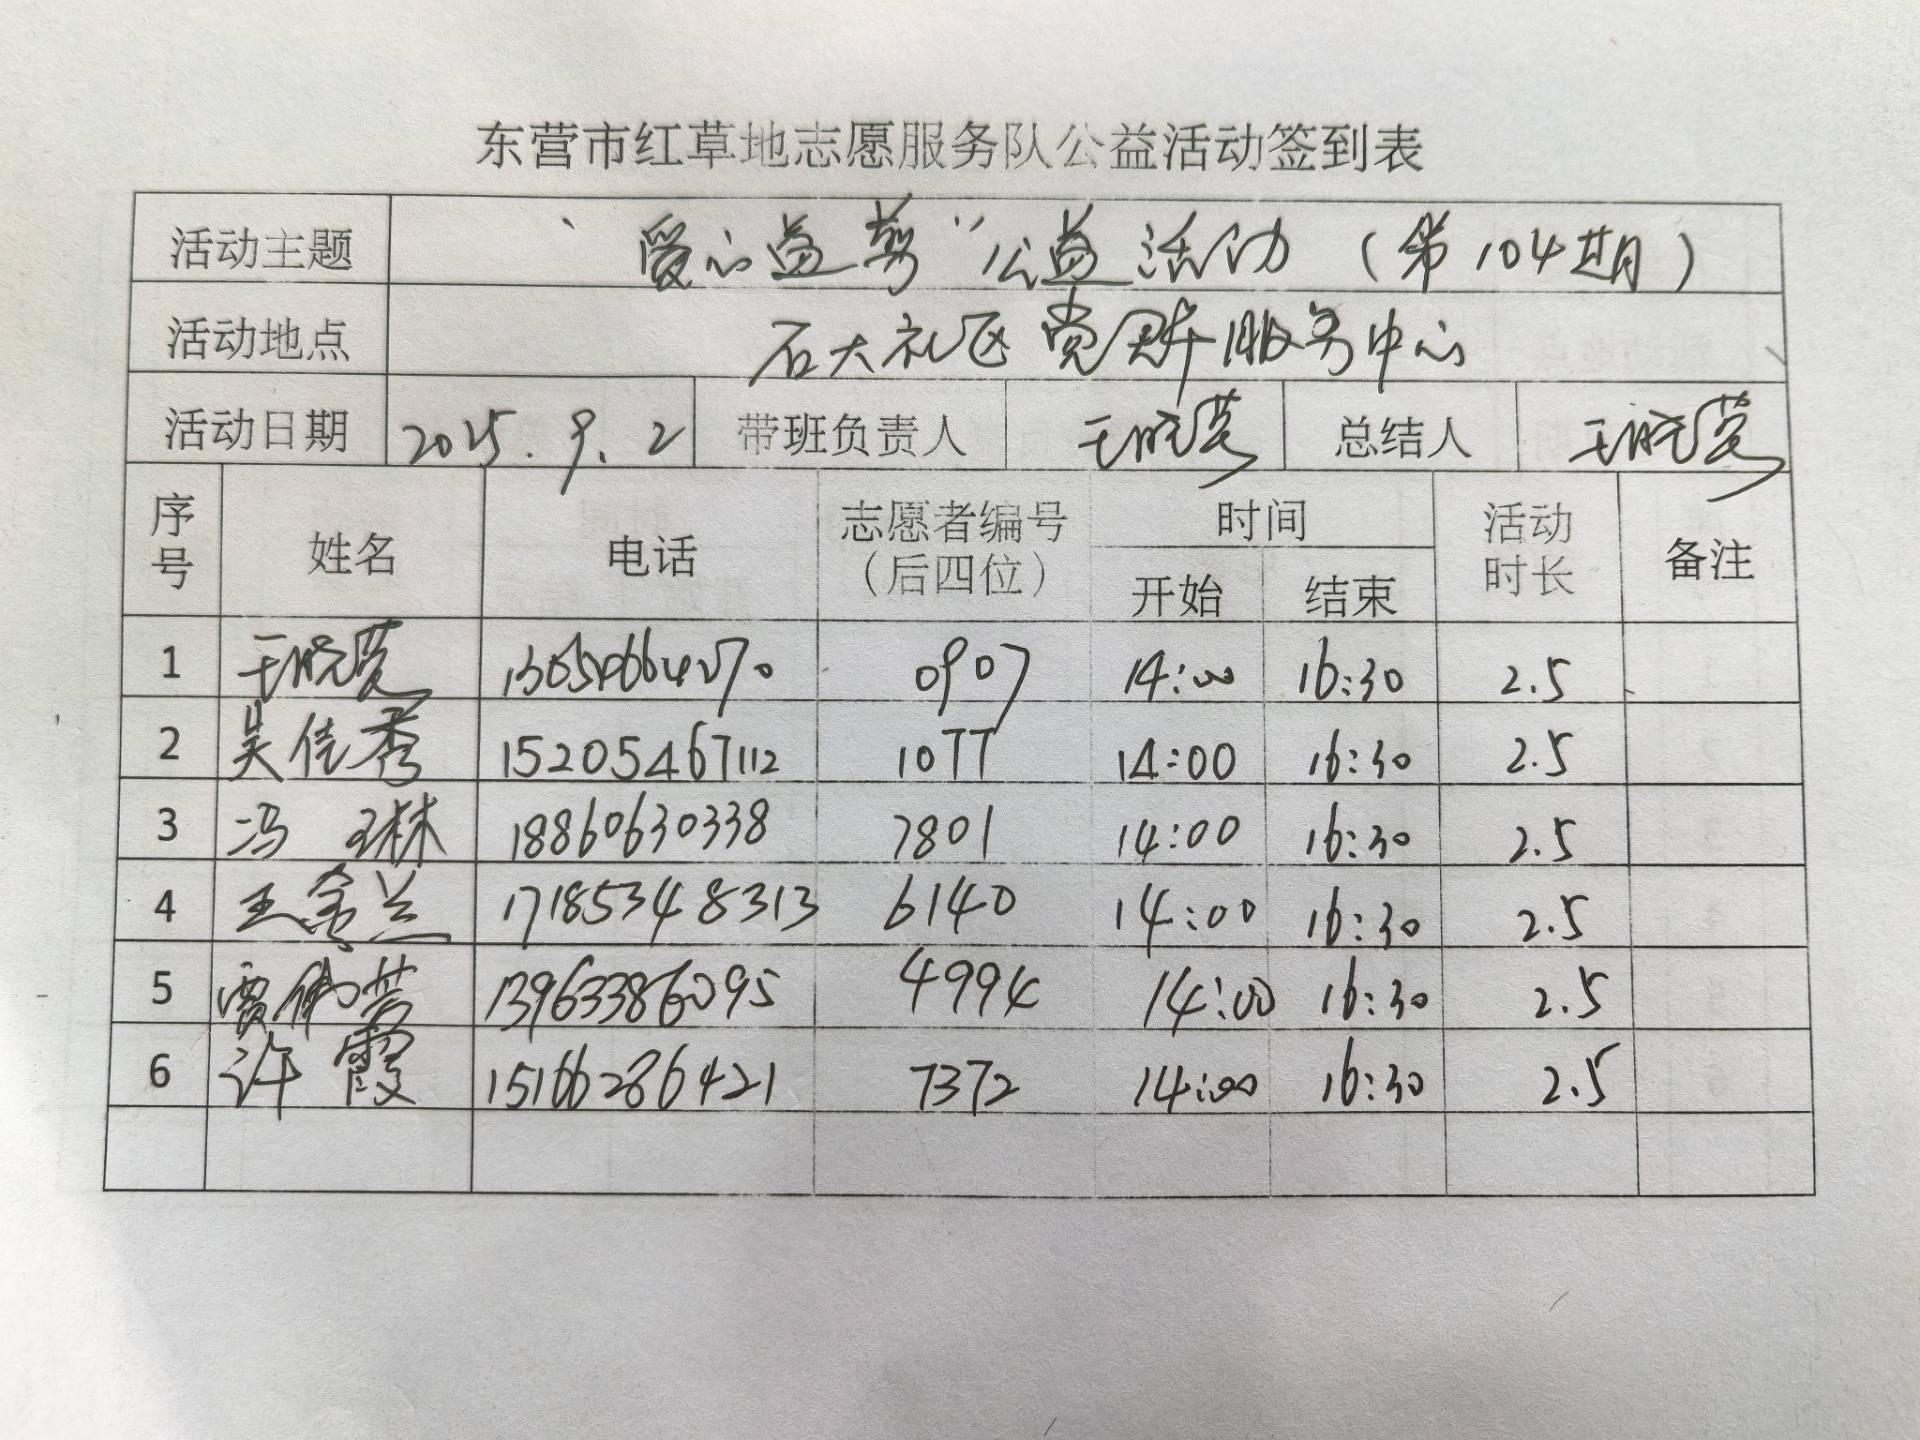 东营市红草地志愿服务队公益活动签到表
活动主题 “爱心益剪”公益活动（第104期）
活动地点 石大社区党群服务中心
活动日期 2025.9.2 带班负责人 王晓莹 总结人 王晓莹
序号 姓名 电话 志愿者编号（后四位） 时间 开始 结束 活动时长 备注
1 王晓莹 0907 14:00 16:30 2.5
2 吴佳秀 15205467112 1077 14:00 16:30 2.5
3 冯琳 18860630338 7801 14:00 16:30 2.5
4 王金兰 17185348313 6140 14:00 16:30 2.5
5 贾伟芳 13963386095 4994 14:00 16:30 2.5
6 许霞 15166286421 7372 14:00 16:30 2.5